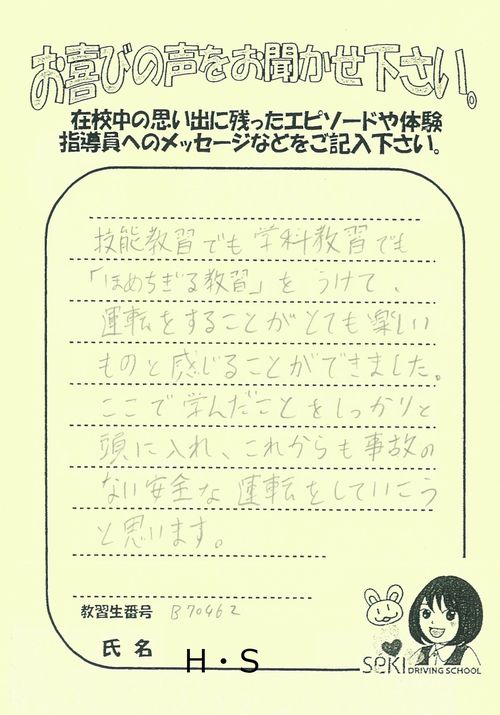 お喜びの声をお聞かせ下さい。
在校中の思い出に残ったエピソードや体験
指導員へのメッセージなどをご記入下さい。
技能教習でも学科教習でも
「ほめちぎる教習」をうけて、
運転をすることがとても楽しい
ものと感じることができました。
ここで学んだことをしっかりと
頭に入れ、これからも事故の
ない安全な運転をしていこう
と思います。
教習生番号 B70462
氏名 H・S
SEKI DRIVING SCHOOL